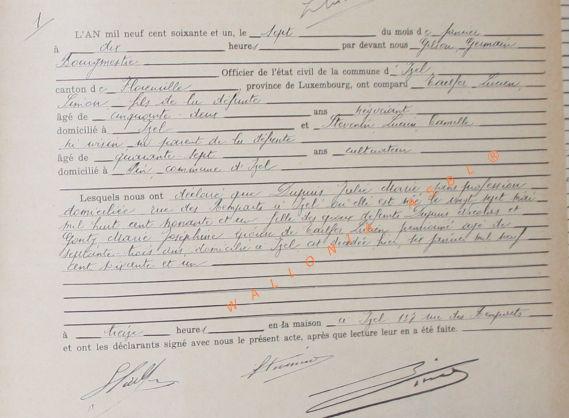 1
L'AN mil neuf cent soixante et un, le Sept du mois de janvier
à dix heures par devant nous Gérion, Germain
Bourgmestre
Officier de l'état civil de la commune d' Izel,
canton de Florenville, province de Luxembourg, ont comparu Lucien,
Simon, fils de la défunte
âgé de cinquante-deux ans négociant
domicilié à Izel et Lucien, Camille
ni voisin, ni parent de la défunte
âgé de quarante-sept ans cultivateur
domicilié à Pin, commune d'Izel
Lesquels nous ont déclaré que Dupuis Julie Marie, sans profession
domiciliée rue des Remparts à Izel où elle est née le vingt sept mai
mil huit cent nonante et un, fille des époux défunts Dupuis Nicolas et
Marie Joséphine, épouse de Lucien, pensionné âgé de
septante-trois ans, domicilié à Izel est décédée hier, six janvier mil neuf
cent soixante et un
à treize heures en la maison à Izel 117 rue des Remparts
et ont les déclarants signé avec nous le présent acte, après que lecture leur en a été faite.
WALLONIE CBL ®